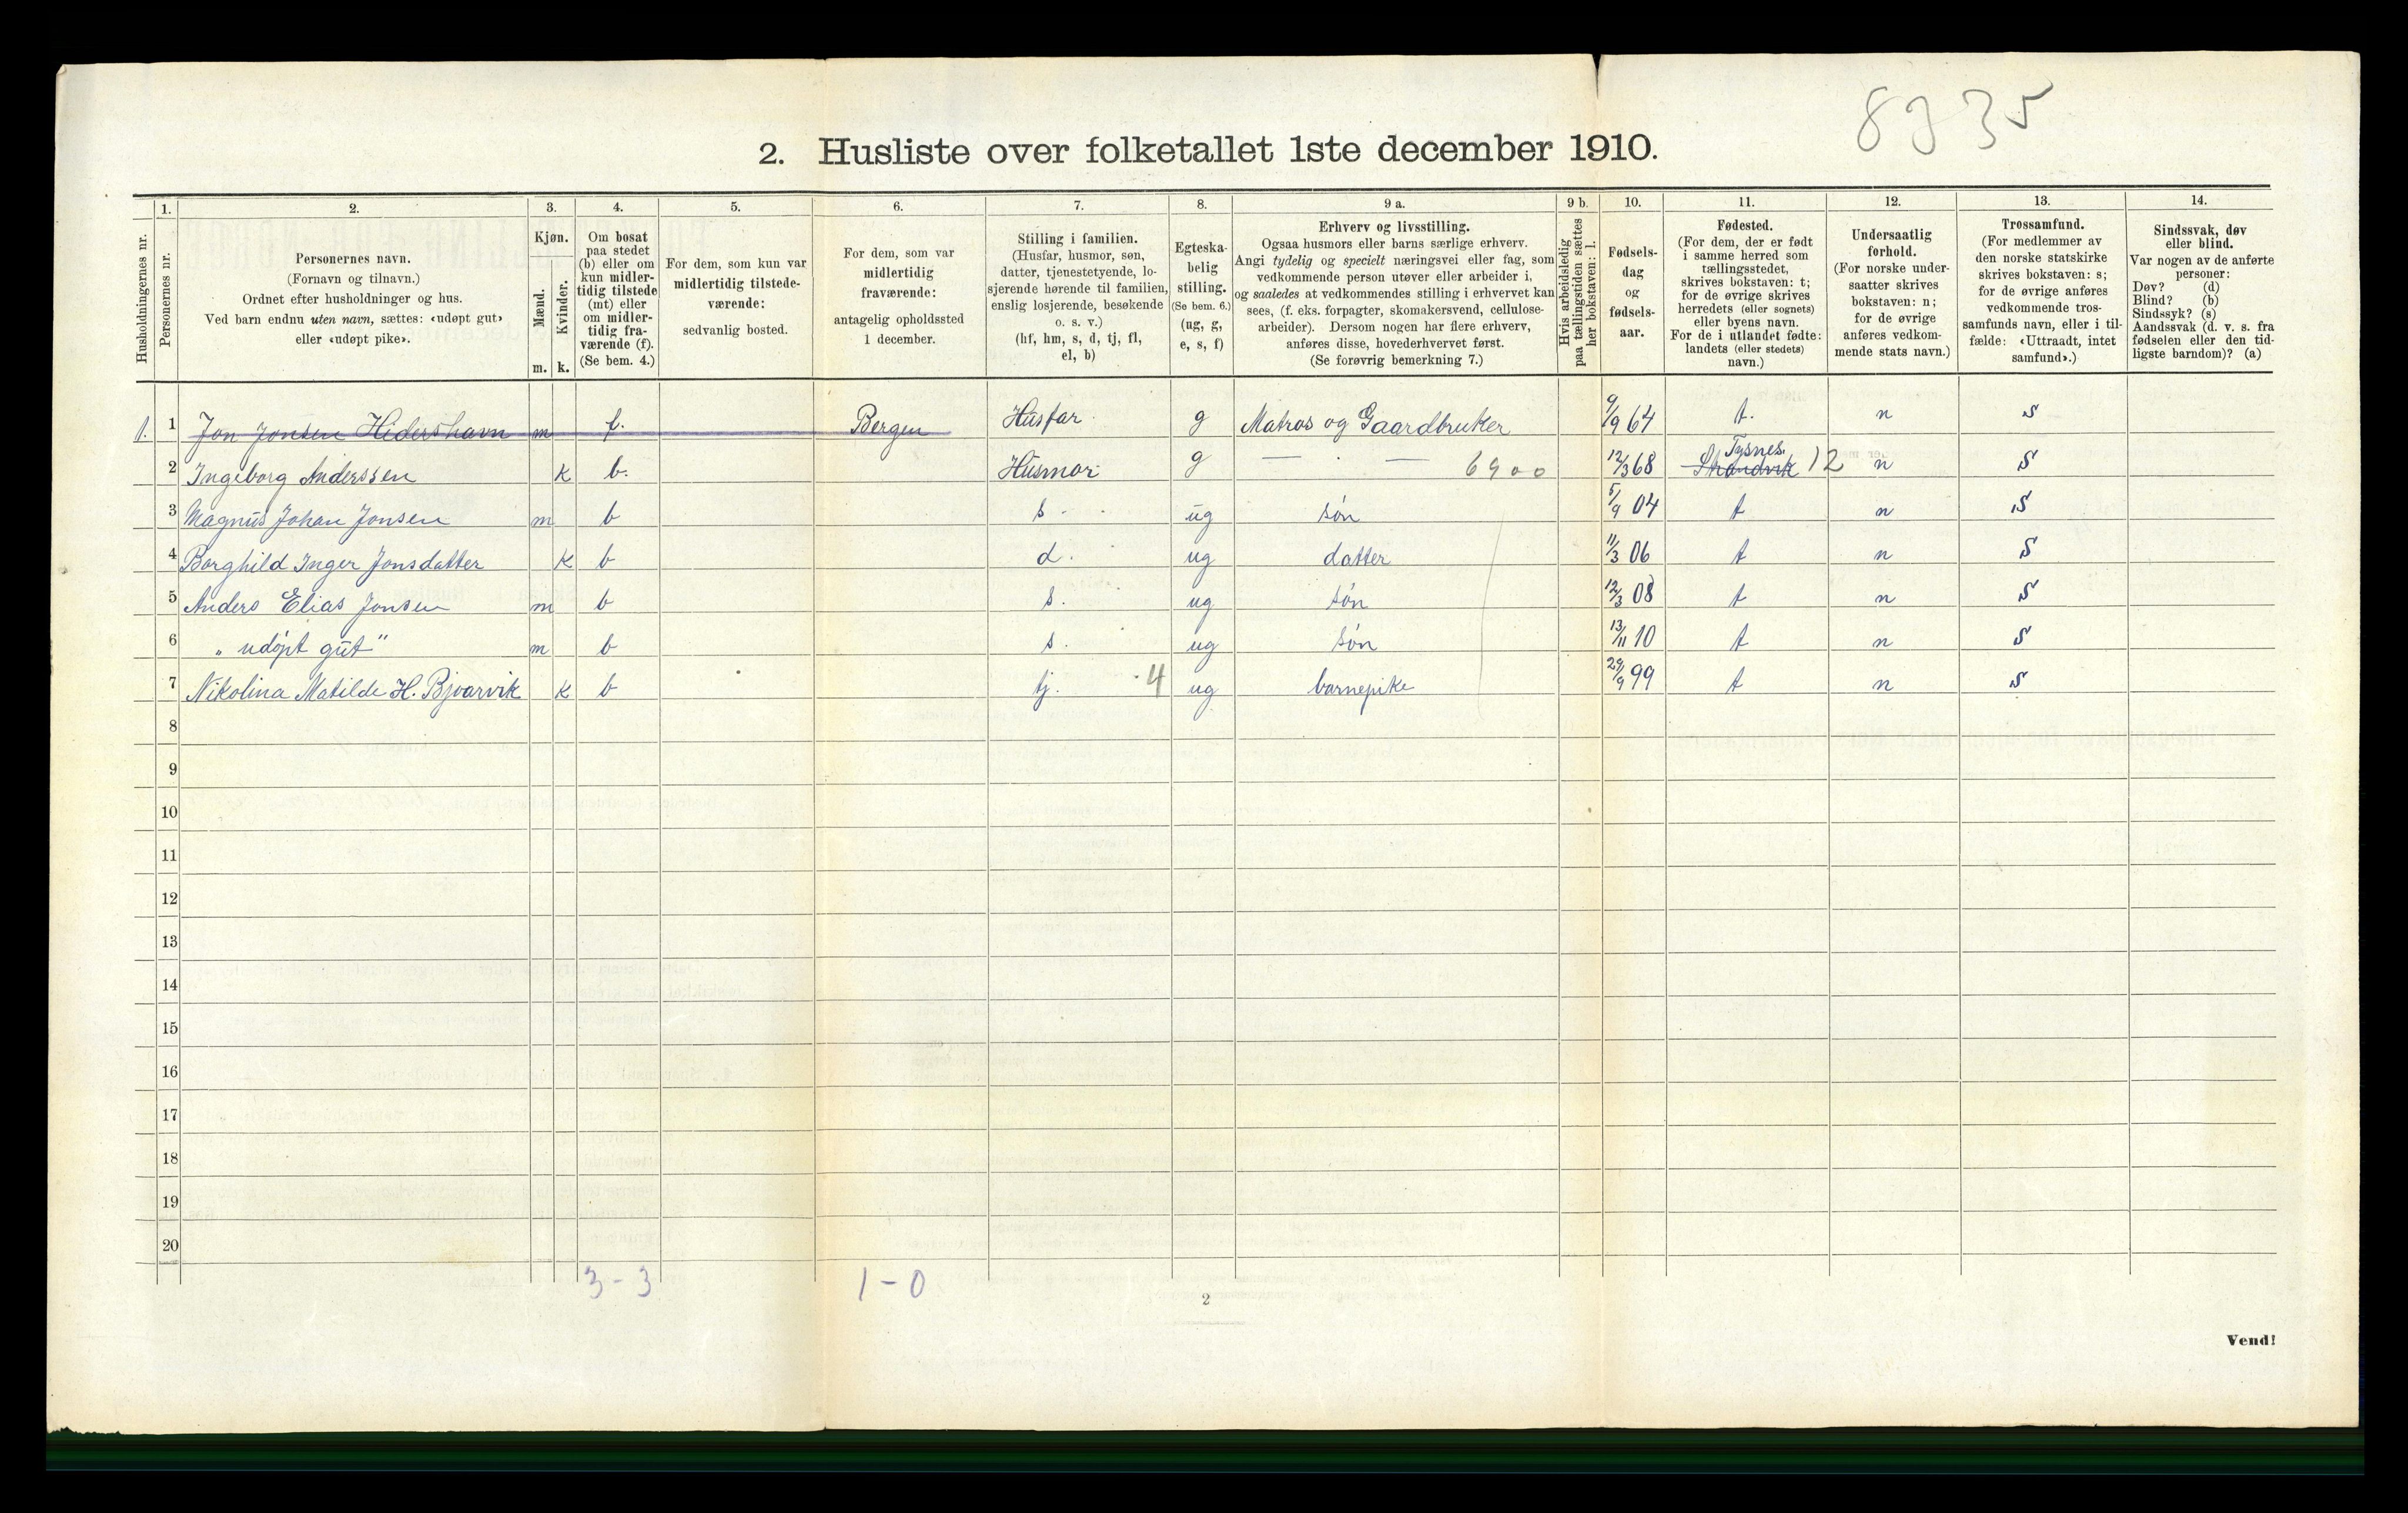 8935
2. Husliste over folketallet 1ste december 1910.
Husholdningernes nr.
1.
Personernes nr.
2.
Personernes navn.
(Fornavn og tilnavn.)
Ordnet efter husholdninger og hus.
Ved barn endnu uten navn, sættes: «udøpt gut»
eller «udøpt pike».
3.
Kjøn.
Mænd.
Kvinder.
m. k.
4.
Om bosat
paa stedet
(b) eller om
kun midler-
tidig tilstede
(mt) eller
om midler-
tidig fra-
værende (f).
(Se bem. 4.)
5.
For dem, som kun var
midlertidig tilstede-
værende:
sedvanlig bosted.
6.
For dem, som var
midlertidig
fraværende:
antagelig opholdssted
1 december.
7.
Stilling i familien.
(Husfar, husmor, søn,
datter, tjenestetyende, lo-
sjerende hørende til familien,
enslig losjerende, besøkende
o. s. v.)
(hf, hm, s, d, tj, fl,
el, b)
8.
Egteska-
belig
stilling.
(Se bem. 6.)
(ug, g,
e, s, f)
9 a.
Erhverv og livsstilling.
Ogsaa husmors eller barns særlige erhverv.
Angi tydelig og specielt næringsvei eller fag, som
vedkommende person utøver eller arbeider i,
og saaledes at vedkommendes stilling i erhvervet kan
sees, (f. eks. forpagter, skomakersvend, cellulose-
arbeider). Dersom nogen har flere erhverv,
anføres disse, hovederhvervet først.
(Se forøvrig bemerkning 7.)
9 b.
Hvis arbeidsledig
paa tællingstiden sættes
her bokstaven: l.
10.
Fødsels-
dag
og
fødsels-
aar.
11.
Fødested.
(For dem, der er født
i samme herred som
tællingsstedet,
skrives bokstaven: t;
for de øvrige skrives
herredets (eller sognets)
eller byens navn.
For de i utlandet fødte:
landets (eller stedets)
navn.)
12.
Undersaatlig
forhold.
(For norske under-
saatter skrives
bokstaven: n;
for de øvrige
anføres vedkom-
mende stats navn.)
13.
Trossamfund.
(For medlemmer av
den norske statskirke
skrives bokstaven: s;
for de øvrige anføres
vedkommende tros-
samfunds navn, eller i til-
fælde: «Uttraadt, intet
samfund».)
14.
Sindssvak, døv
eller blind.
Var nogen av de anførte
personer:
Døv? (d)
Blind? (b)
Sindssyk? (s)
Aandssvak (d. v. s. fra
fødselen eller den tid-
ligste barndom)? (a)
1. 1 Jon Jonsen Hidershavn m f. Bergen Husfar g Matros og Gaardbruker 9/9 64 t. n s
2 Ingeborg Anderssen k b. Husmor g — · — 6900 12/3 68 Tysnes 12 n s
3 Magnus Johan Jonsen m b s. ug søn 5/9 04 t n s
4 Borghild Inger Jonsdatter k b d. ug datter 11/3 06 t n s
5 Anders Elias Jonsen m b s. ug søn 12/3 08 t n s
6 „ udøpt gut" m b s. ug søn 13/11 10 t n s
7 Nikolina Matilde H. Bjvarvik k b tj. 4 ug barnepike 29/9 99 t n s
8
9
10
11
12
13
14
15
16
17
18
19
20
3 - 3 1 - 0
2
Vend!